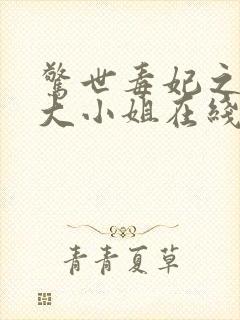 驚世毒妃之
大小姐在綫
青青夏草